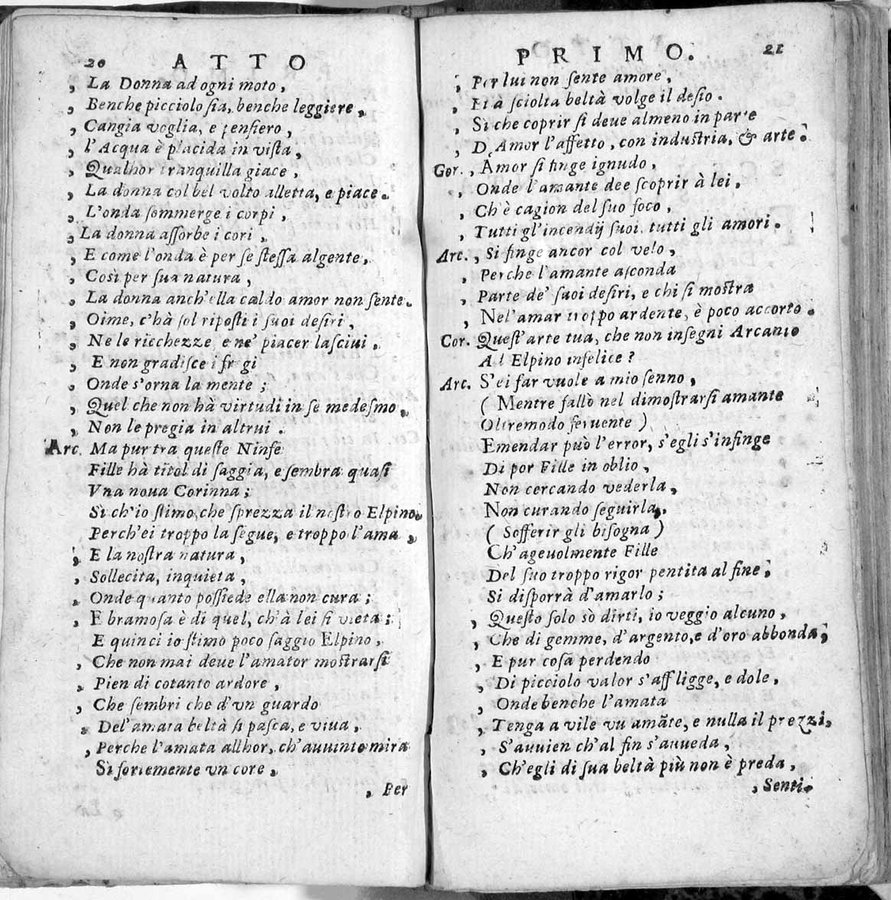 20 ATTO
, La Donna ad ogni moto,
, Benche picciolo sia, benche leggiere,
, Cangia voglia, e pensiero,
, l'Acqua è placida in vista,
, Qualhor tranquilla giace,
, La donna col bel volto alletta, e piace.
, L'onda sommerge i corpi,
, La donna assorbe i cori,
, E come l'onda è per se stessa algente,
, Così per sua natura,
, La donna anch'ella caldo amor non sente.
, Oime, c'hà sol riposti i suoi desiri,
, Ne le ricchezze, e ne' piacer lasciui.
, E non gradisce i fregi
, Onde s'orna la mente;
, Quel che non hà virtudi in se medesmo,
, Non le pregia in altrui.
Arc. Ma pur tra queste Ninfe
Fille hà titol di saggia, e sembra quasi
Vna noua Corinna;
Si ch'io stimo, che sprezza il nostro Elpino,
Perch'ei troppo la segue, e troppo l'ama,
, E la nostra natura,
, Sollecita, inquieta,
, Onde quanto possiede ella non cura;
, E bramosa è di quel, ch'à lei si vieta;
E quinci io stimo poco saggio Elpino,
, Che non mai deue l'amator mostrarsi
, Pien di cotanto ardore,
, Che sembri che d'vn guardo
, Del'amata beltà si pasca, e viua,
, Perche l'amata allhor, ch'auuinto mira
Si fortemente vn core,
, Per
PRIMO. 21
, Per lui non sente amore,
, Et à sciolta beltà volge il desio.
, Si che coprir si deue almeno in parte
, D'Amor l'affetto, con industria, & arte.
Cor., Amor si finge ignudo,
, Onde l'amante dee scoprir à lei,
, Ch'è cagion del suo foco,
, Tutti gl'incendij suoi, tutti gli amori.
Arc., Si finge ancor col velo,
, Perche l'amante asconda
, Parte de' suoi desiri, e chi si mostra
, Nel'amar troppo ardente, è poco accorto.
Cor. Quest'arte tua, che non insegni Arcanio
Ad Elpino infelice?
Arc. S'ei far vuole a mio senno,
(Mentre fallò nel dimostrarsi amante
Oltremodo feruente)
Emendar può l'error, s'egli s'infinge
Di por Fille in oblio,
Non cercando vederla,
Non curando seguirla,
(Sofferir gli bisogna)
Ch'ageuolmente Fille
Del suo troppo rigor pentita al fine,
Si disporrà d'amarlo;
, Questo solo sò dirti, io veggio alcuno,
, Che di gemme, d'argento, e d'oro abbonda,
, E pur cosa perdendo
, Di picciolo valor s'affligge, e dole,
, Onde benche l'amata
, Tenga a vile vn amãte, e nulla il prezzi,
, S'auuien ch'al fin s'auueda,
, Ch'egli di sua beltà più non è preda,
, Senti-